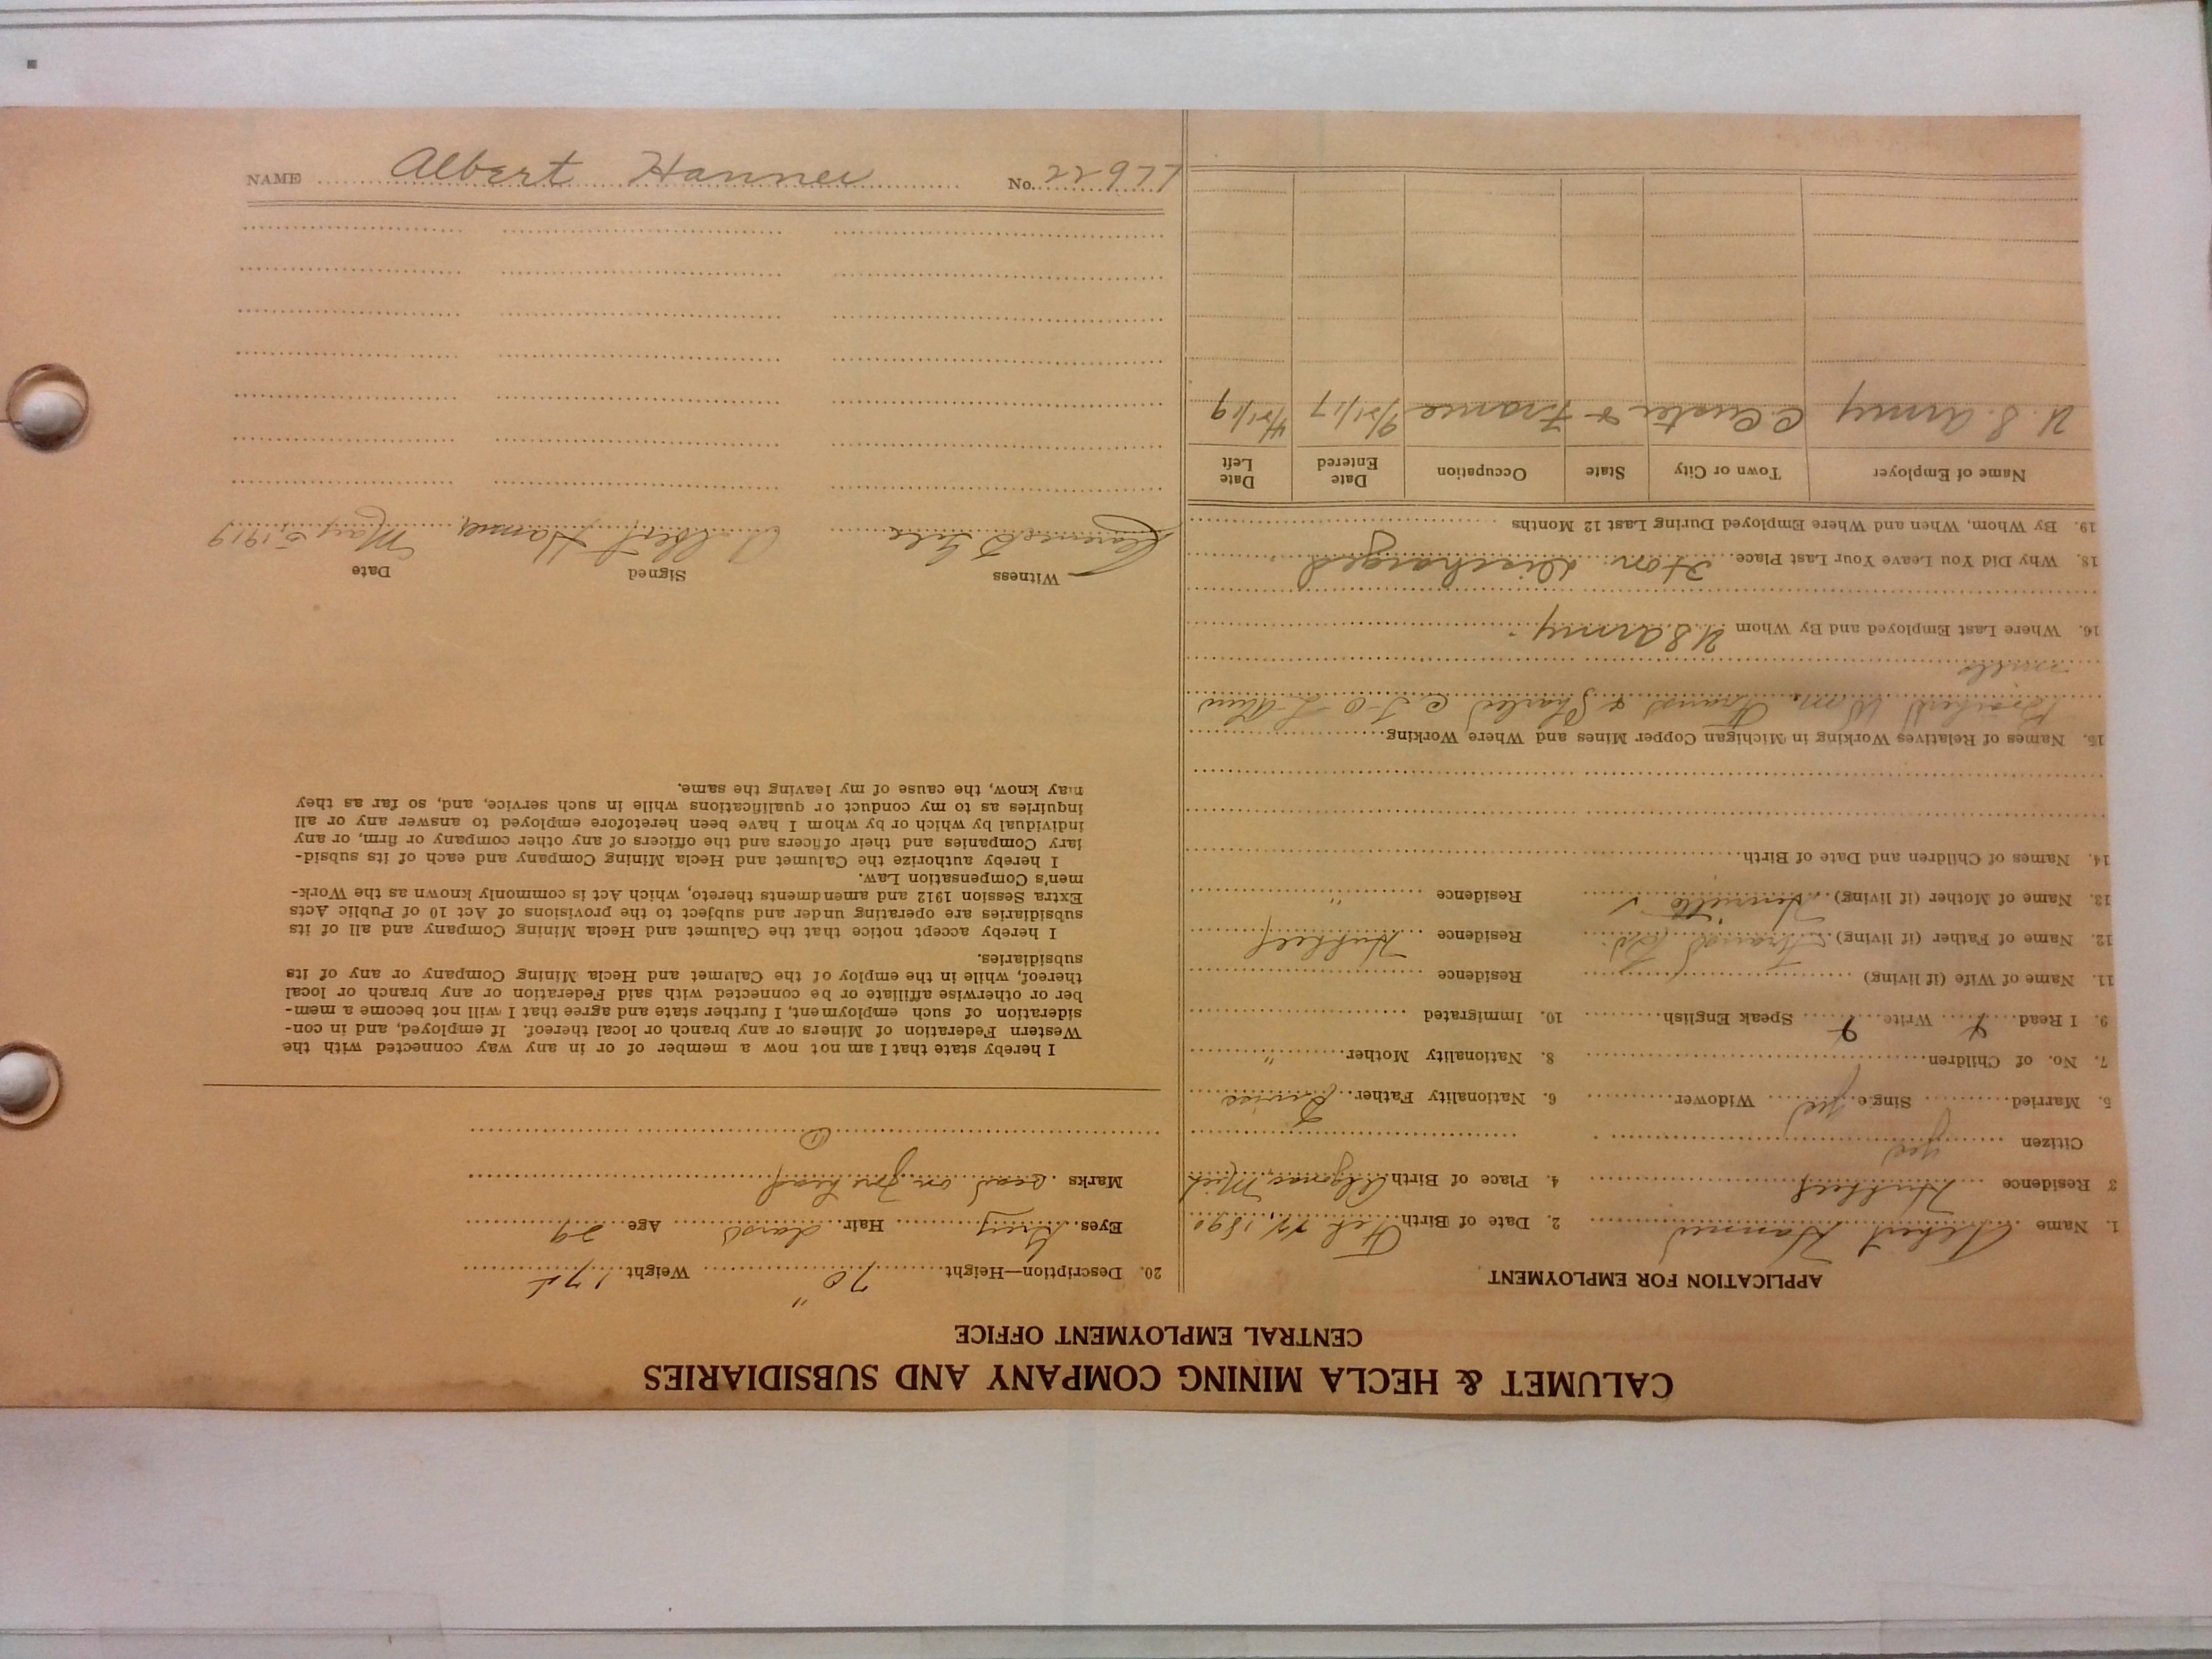 CALUMET & HECLA MINING COMPANY AND SUBSIDIARIES
CENTRAL EMPLOYMENT OFFICE
APPLICATION FOR EMPLOYMENT
1. Name Albert Hanner 2. Date of Birth Feb 1890
3 Residence Hubbell 4. Place of Birth Algonac Mich
Citizen yes
5. Married Single yes Widower 6. Nationality Father
7. No. of Children 8. Nationality Mother "
9. I Read Write Speak English 10. Immigrated
11. Name of Wife (if living) Residence
12. Name of Father (if living) Residence Hubbell
13. Name of Mother (if living) Residence "
14. Names of Children and Date of Birth
15. Names of Relatives Working in Michigan Copper Mines and Where Working
Wm. & Charles
mills
16. Where Last Employed and By Whom U S Army
18. Why Did You Leave Your Last Place Hon. discharged
19. By Whom, When and Where Employed During Last 12 Months
Name of Employer Town or City State Occupation Date Entered Date Left
U. S. Army C. Custer & France 9/21/17 4/21/19
20. Description—Height 70" Weight
Eyes Grey Hair dark Age 29
Marks scar on forehead
I hereby state that I am not now a member of or in any way connected with the
Western Federation of Miners or any branch or local thereof. If employed, and in con-
sideration of such employment, I further state and agree that I will not become a mem-
ber or otherwise affiliate or be connected with said Federation or any branch or local
thereof, while in the employ of the Calumet and Hecla Mining Company or any of its
subsidiaries.
I hereby accept notice that the Calumet and Hecla Mining Company and all of its
subsidiaries are operating under and subject to the provisions of Act 10 of Public Acts
Extra Session 1912 and amendments thereto, which Act is commonly known as the Work-
men's Compensation Law.
I hereby authorize the Calumet and Hecla Mining Company and each of its subsid-
iary Companies and their officers and the officers of any other company or firm, or any
individual by which or by whom I have been heretofore employed to answer any or all
inquiries as to my conduct or qualifications while in such service, and, so far as they
may know, the cause of my leaving the same.
Witness Signed Date
Albert Hanner May 5, 1919
NAME Albert Hanner No. 22977